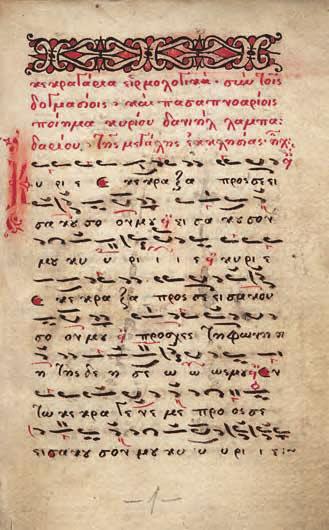 κεκραγάρια εἱρμολογικά· σὺν τοῖς
δογματίοις· καὶ πασαπνοαρίοις
ποίημα κυρίου δανιὴλ λαμπα:
δαρίου· τῆς μεγάλης ἐκκλησίας· ἦχ:
Κ υ ρι ε ε κε κρα ξα προς σε ει
σα κυ σο ον μου ει σα κου σον
μου κυ υ ρι ι ι ε κυριε
ε κε κρα ξα προς σε εισακου
σο ον μου προσχες τη φωνη η
η της δε η σε ω ω ω ς μου εν
τω κε κρα γε νε με προ ος σε
εισακου σον μου κυ υ υρι ε:~
-1-